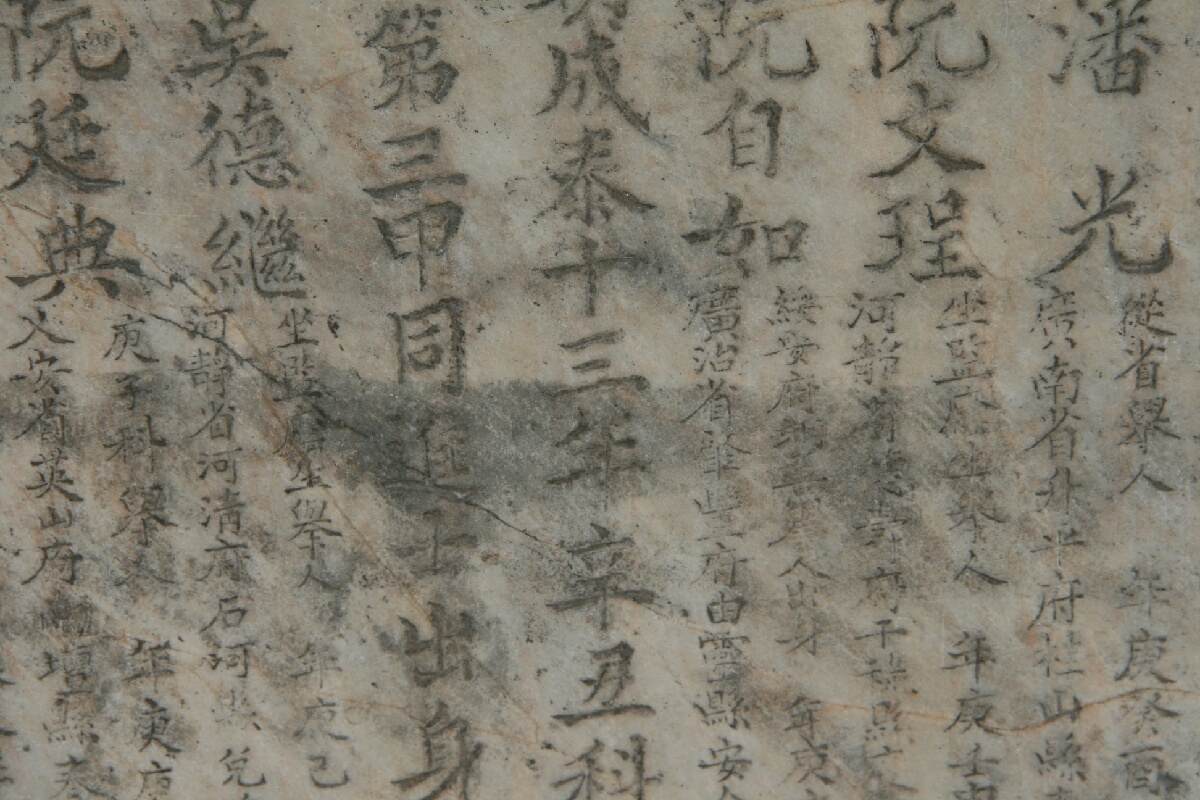 潘光
從省舉人 年庚癸酉
廣南省升平府桂山縣
阮文程
坐監廕生舉人 年庚壬申
河靜省德壽府干祿縣
阮自如
綏安府 出身 年庚
廣治省肇豐府由靈縣安
成泰十三年辛丑科
第三甲同進士出身
吳德繼
坐監廕生舉人 年庚己
河靜省河清府石河縣
阮廷典
庚子科舉人 年庚庚
乂安省英山府 壇縣春